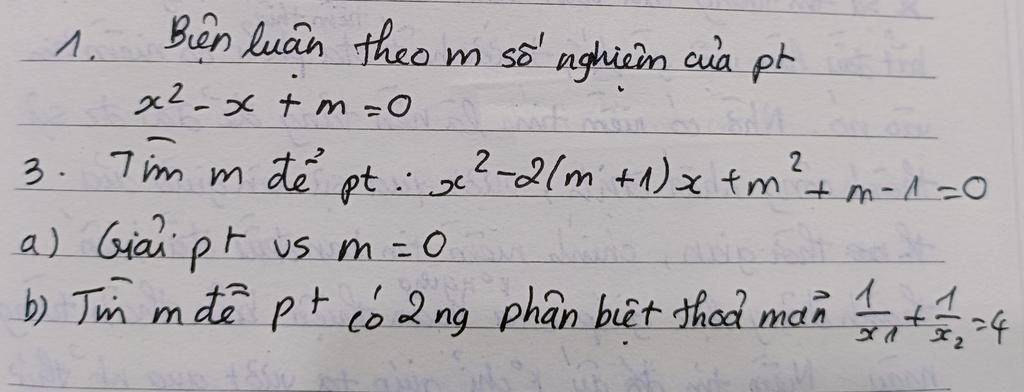 1. Biện luận theo m số nghiệm của pt
x² - x + m = 0
3. Tìm m để pt : x² - 2(m + 1)x + m² + m - 1 = 0
a) Giải pt vs m = 0
b) Tìm m để pt có 2 ng phân biệt thoả mãn 1/x₁ + 1/x₂ = 4